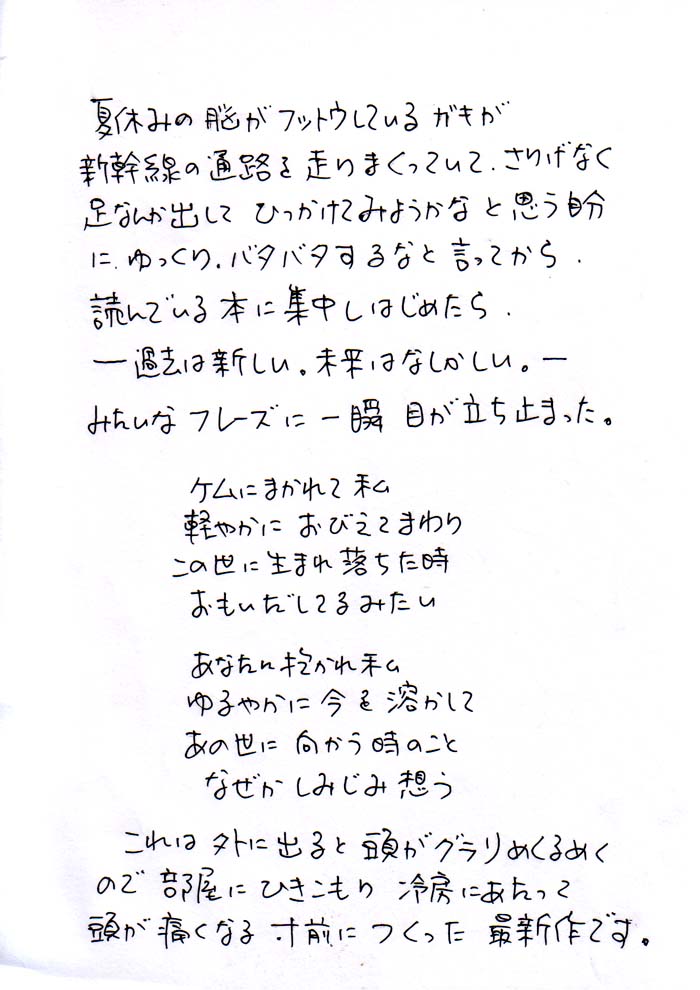 夏休みの脳がフットウしているガキが
新幹線の通路を走りまくっていて、さりげなく
足なんか出してひっかけてみようかなと思う自分
に、ゆっくり、バタバタするなと言ってから、
読んでいる本に集中しはじめたら、
―過去は新しい。未来はなつかしい。―
みたいなフレーズに一瞬目が立ち止まった。
ケムにまかれて私
軽やかにおびえてまわり
この世に生まれ落ちた時
おもいだしてるみたい
あなたに抱かれ私
ゆるやかに今を溶かして
あの世に向かう時のこと
なぜかしみじみ想う
これは外に出ると頭がグラリめくるめく
ので部屋にひきこもり冷房にあたって
頭が痛くなる寸前につくった最新作です。